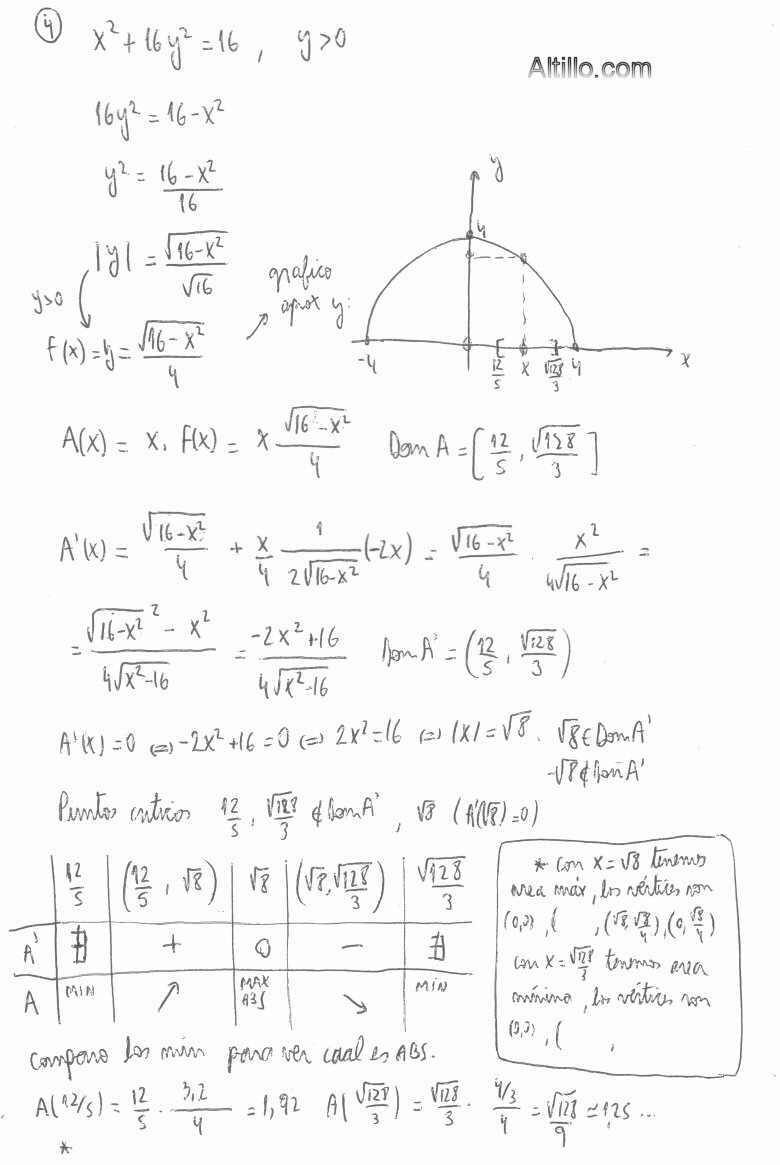 4) x² + 16y² = 16 , y > 0
Altillo.com
16y² = 16 - x²
y² = (16 - x²)/16
|y| = √(16 - x²)/√16
y>0
f(x) = y = √(16 - x²)/4
grafico
aprox y:
y
4
-4 12/5 x √128/3 4 x
A(x) = x . f(x) = x √(16 - x²)/4 Dom A = [12/5 , √128/3]
A'(x) = √(16 - x²)/4 + x/4 1/(2√(16 - x²)) (-2x) = √(16 - x²)/4 - x²/(4√(16 - x²)) =
= (√(16 - x²)² - x²)/(4√(x² - 16)) = (-2x² + 16)/(4√(x² - 16)) Dom A' = (12/5 , √128/3)
A'(x) = 0 ⇔ -2x² + 16 = 0 ⇔ 2x² = 16 ⇔ |x| = √8 . √8 ∈ Dom A'
-√8 ∉ Dom A'
Puntos criticos 12/5 , √128/3 ∉ Dom A' , √8 (A'(√8) = 0)
12/5 (12/5 , √8) √8 (√8, √128/3) √128/3
A' ∄ + 0 - ∄
A MIN ↗ MAX ABS ↘ MIN
* con x = √8 tenemos
area máx, los vértices son
(0,0) , ( , (√8, √8/4), (0, √8/4)
con x = √128/3 tenemos area
mínima , los vértices son
(0,0) , ( ,
comparo los min para ver cual es ABS.
A(12/5) = 12/5 . 3,2/4 = 1,92 A(√128/3) = √128/3 . (4/3)/4 = √128/9 ≃ 1,25 ...
*